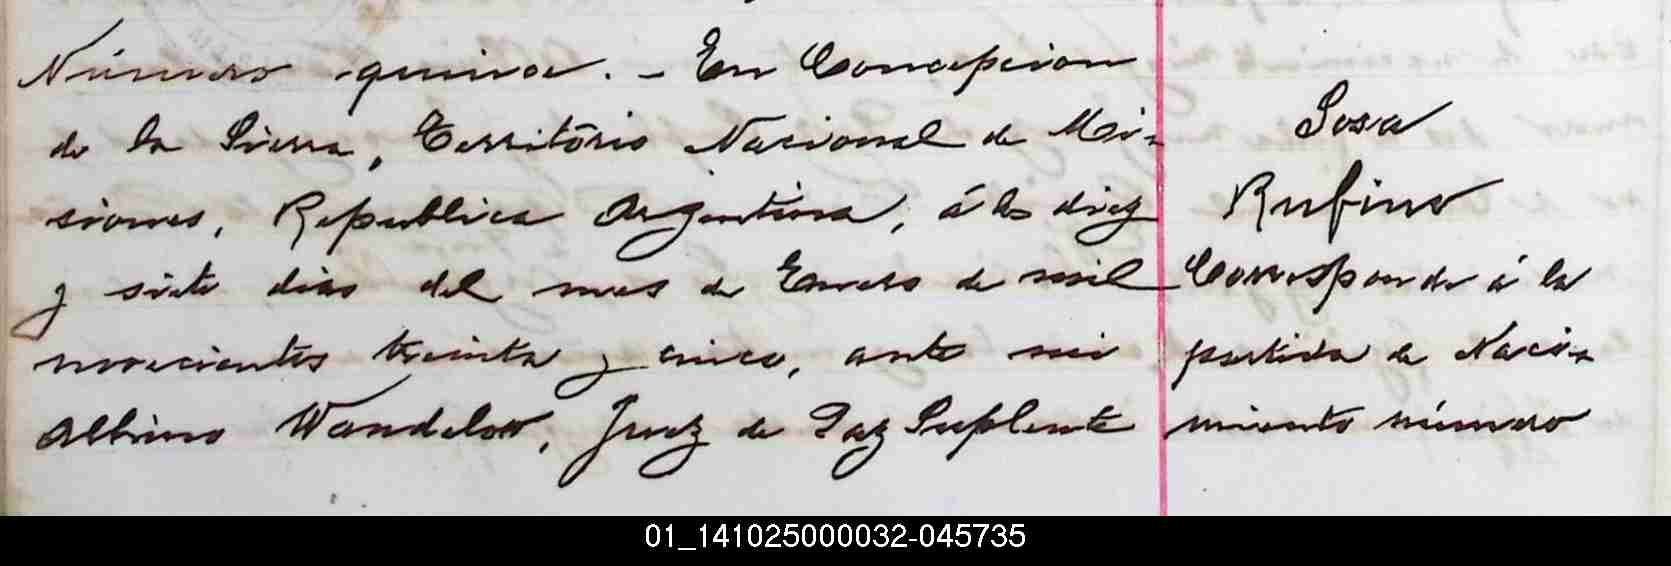 Número quince. - En Concepcion
de la Sierra, Territorio Nacional de Mi-
siones, Republica Argentina, á los diez
y siete dias del mes de Enero de mil
novecientos treinta y cinco, ante mi
Albino Wandelow, Juez de Paz Suplente
Sosa
Rufino
Corresponde á la
partida de Naci-
miento número
01_141025000032-045735